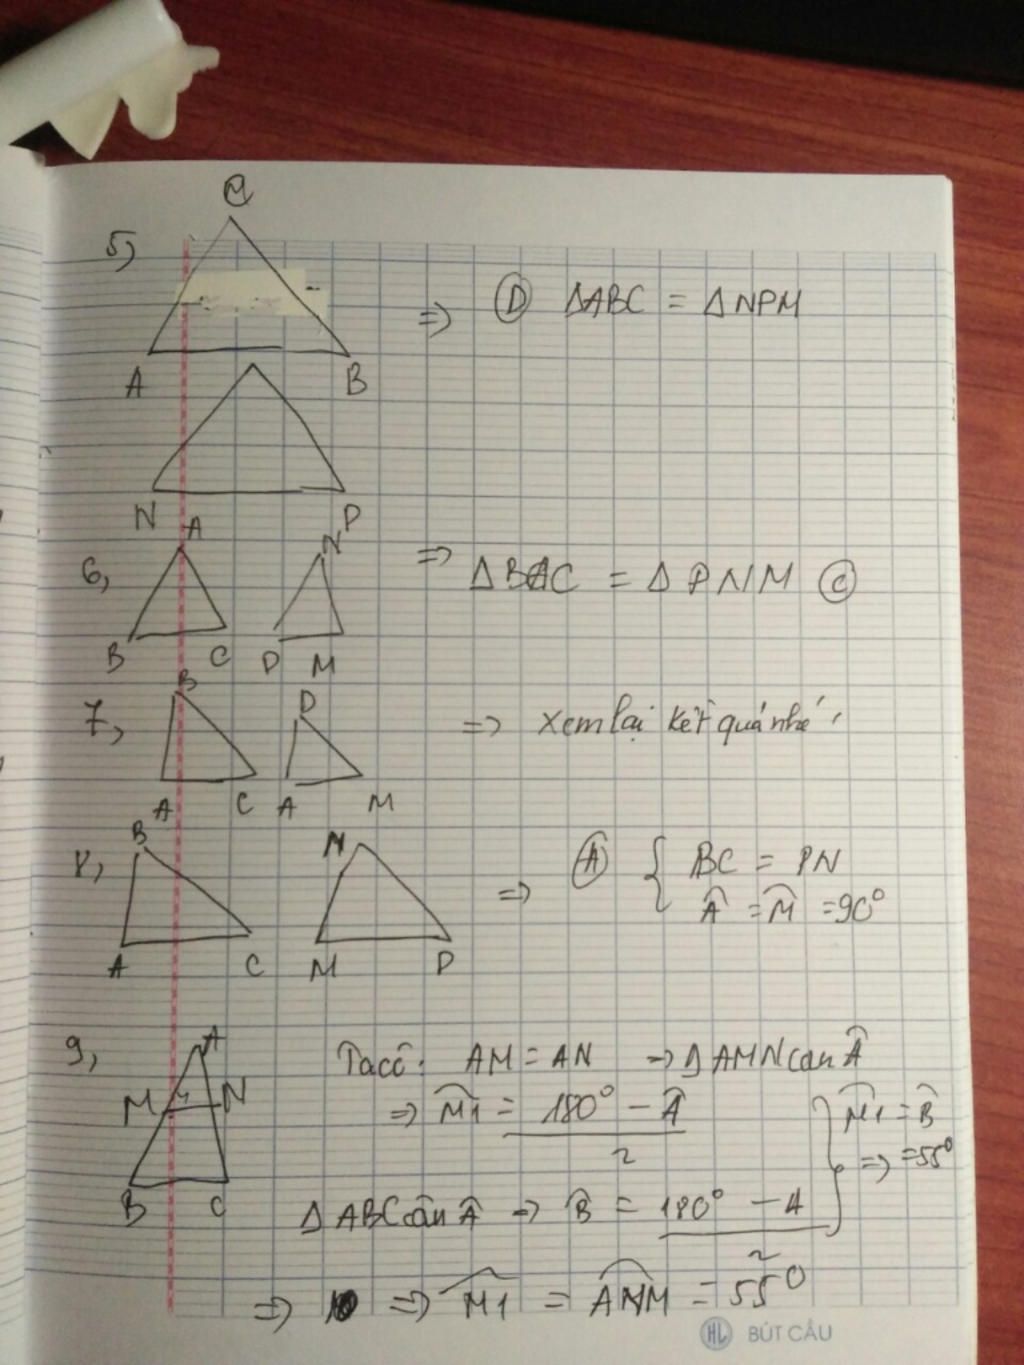 5)
A B
⇒ Ⓓ ΔABC = ΔNPM
N P
6,
A
B C
N
P M
⇒ ΔBAC = ΔPNM Ⓒ
7,
B
A C
D
A M
⇒ xem lại kết quả nhé,
8,
B
A C
N
M P
⇒ Ⓐ { BC = PN
Â = M̂ = 90°
9,
A
M 1 N
B C
Ta có: AM = AN → ΔAMN cân Â
⇒ M̂1 = 180° - Â
2
ΔABC cân Â → B̂ = 180° - A
2
} M̂1 = B̂
⇒ = 55°
⇒ ⇒ M̂1 = ANM = 55°
HL BÚT CÂU